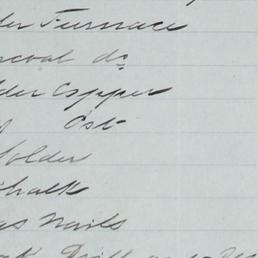 der Furnace
rcoal do
der Copper
Cst
Solder
Chalk
as Nails
Drill